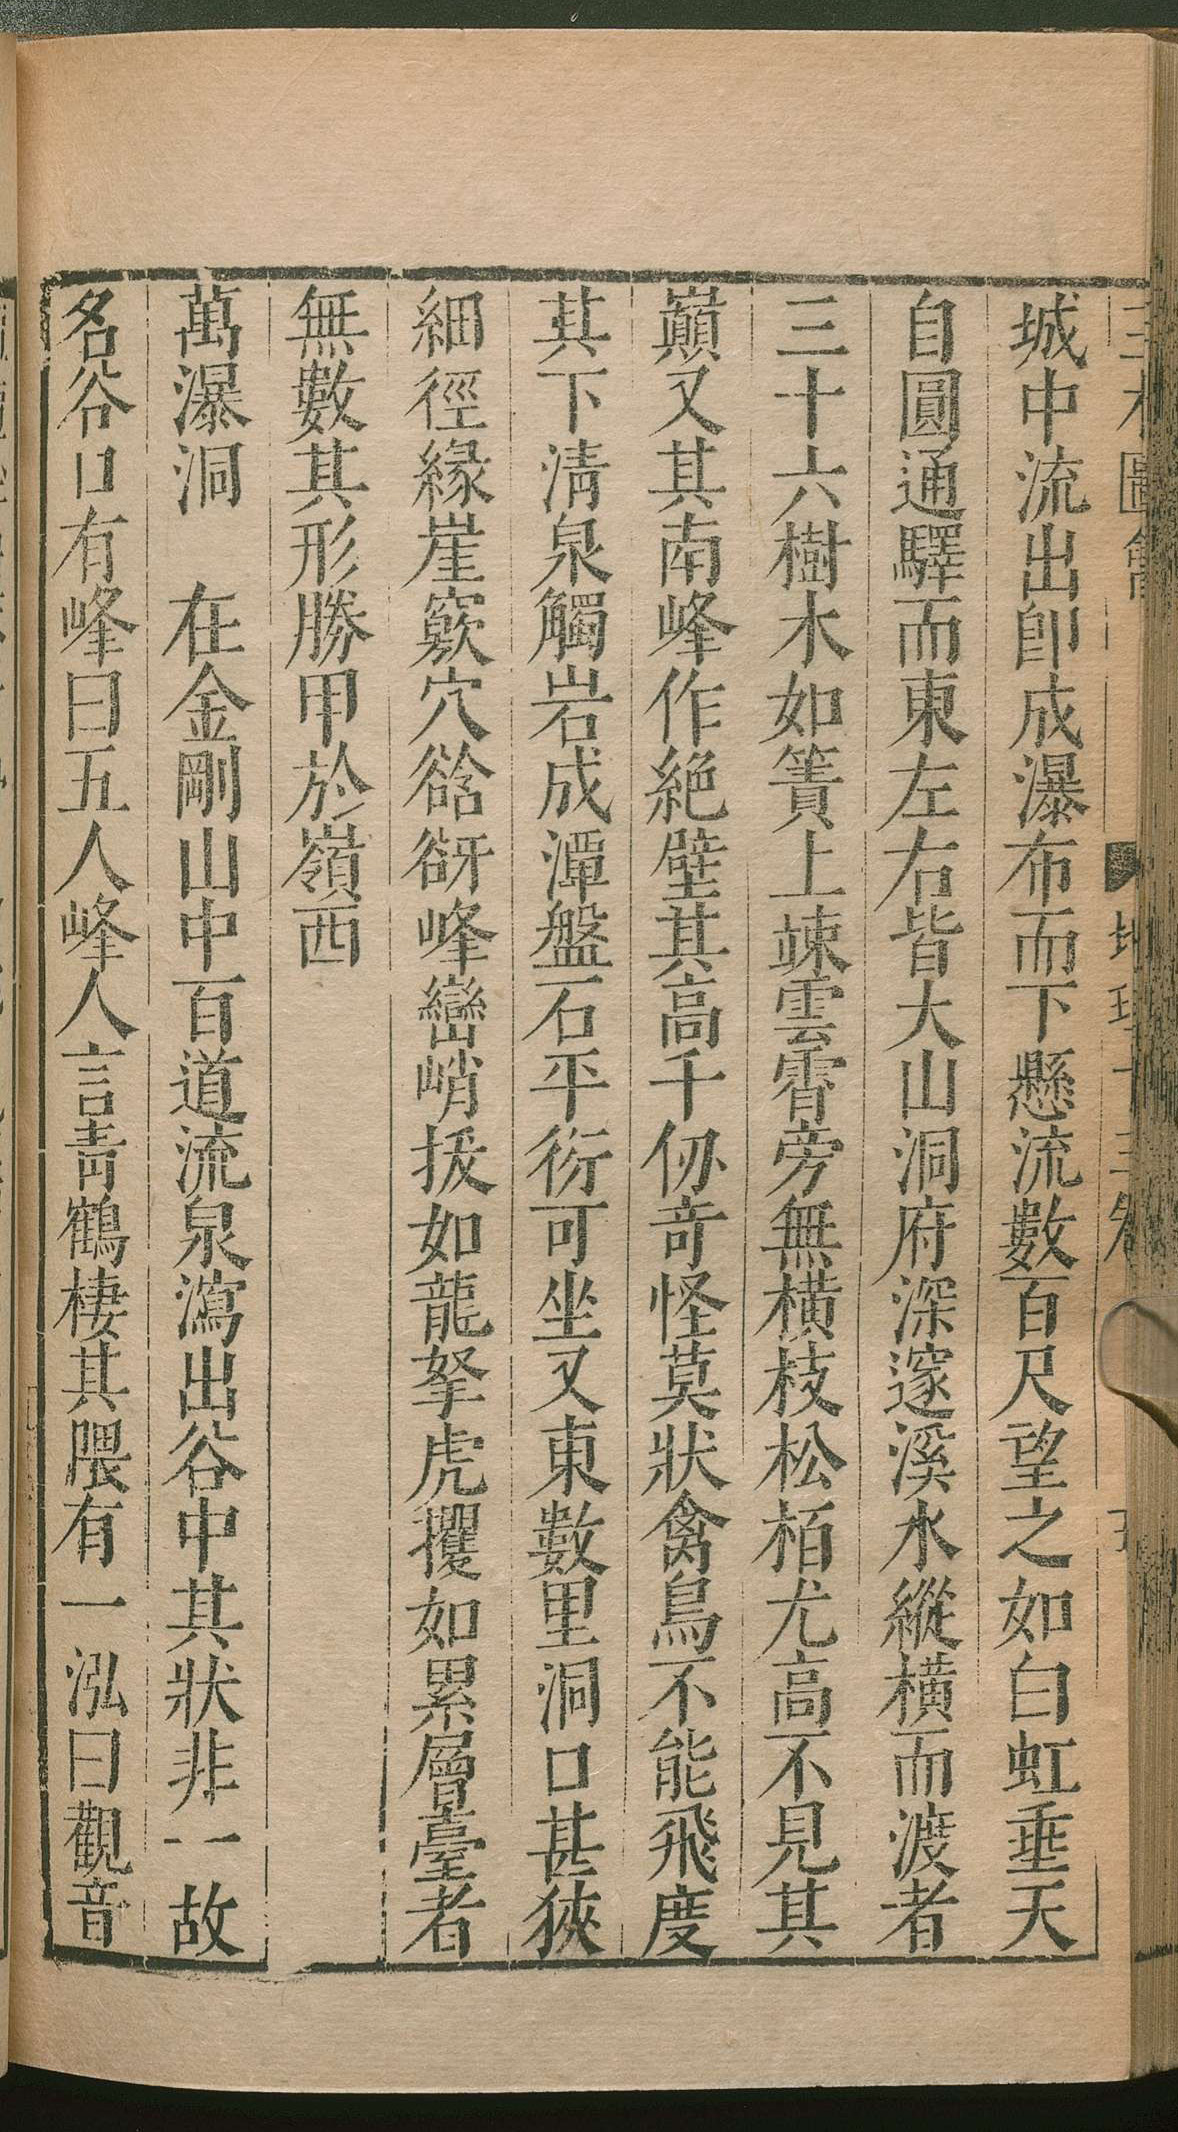 三才圖會 地理十三卷
城中流出卽成瀑布而下懸流數百尺望之如白虹垂天
自圓通驛而東左右皆大山洞府深邃溪水縱橫而渡者
三十六樹木如簀上竦雲霄旁無橫枝松栢尤高不見其
巔又其南峰作絶壁其高千仞奇怪莫狀禽鳥不能飛度
其下淸泉觸岩成潭盤石平衍可坐又東數里洞口甚狹
細徑緣崖竅穴谽谺峰巒峭拔如龍拏虎攫如累層臺者
無數其形勝甲於嶺西
萬瀑洞 在金剛山中百道流泉瀉出谷中其狀非一故
名谷口有峰曰五人峰人言靑鶴棲其隈有一泓曰觀音